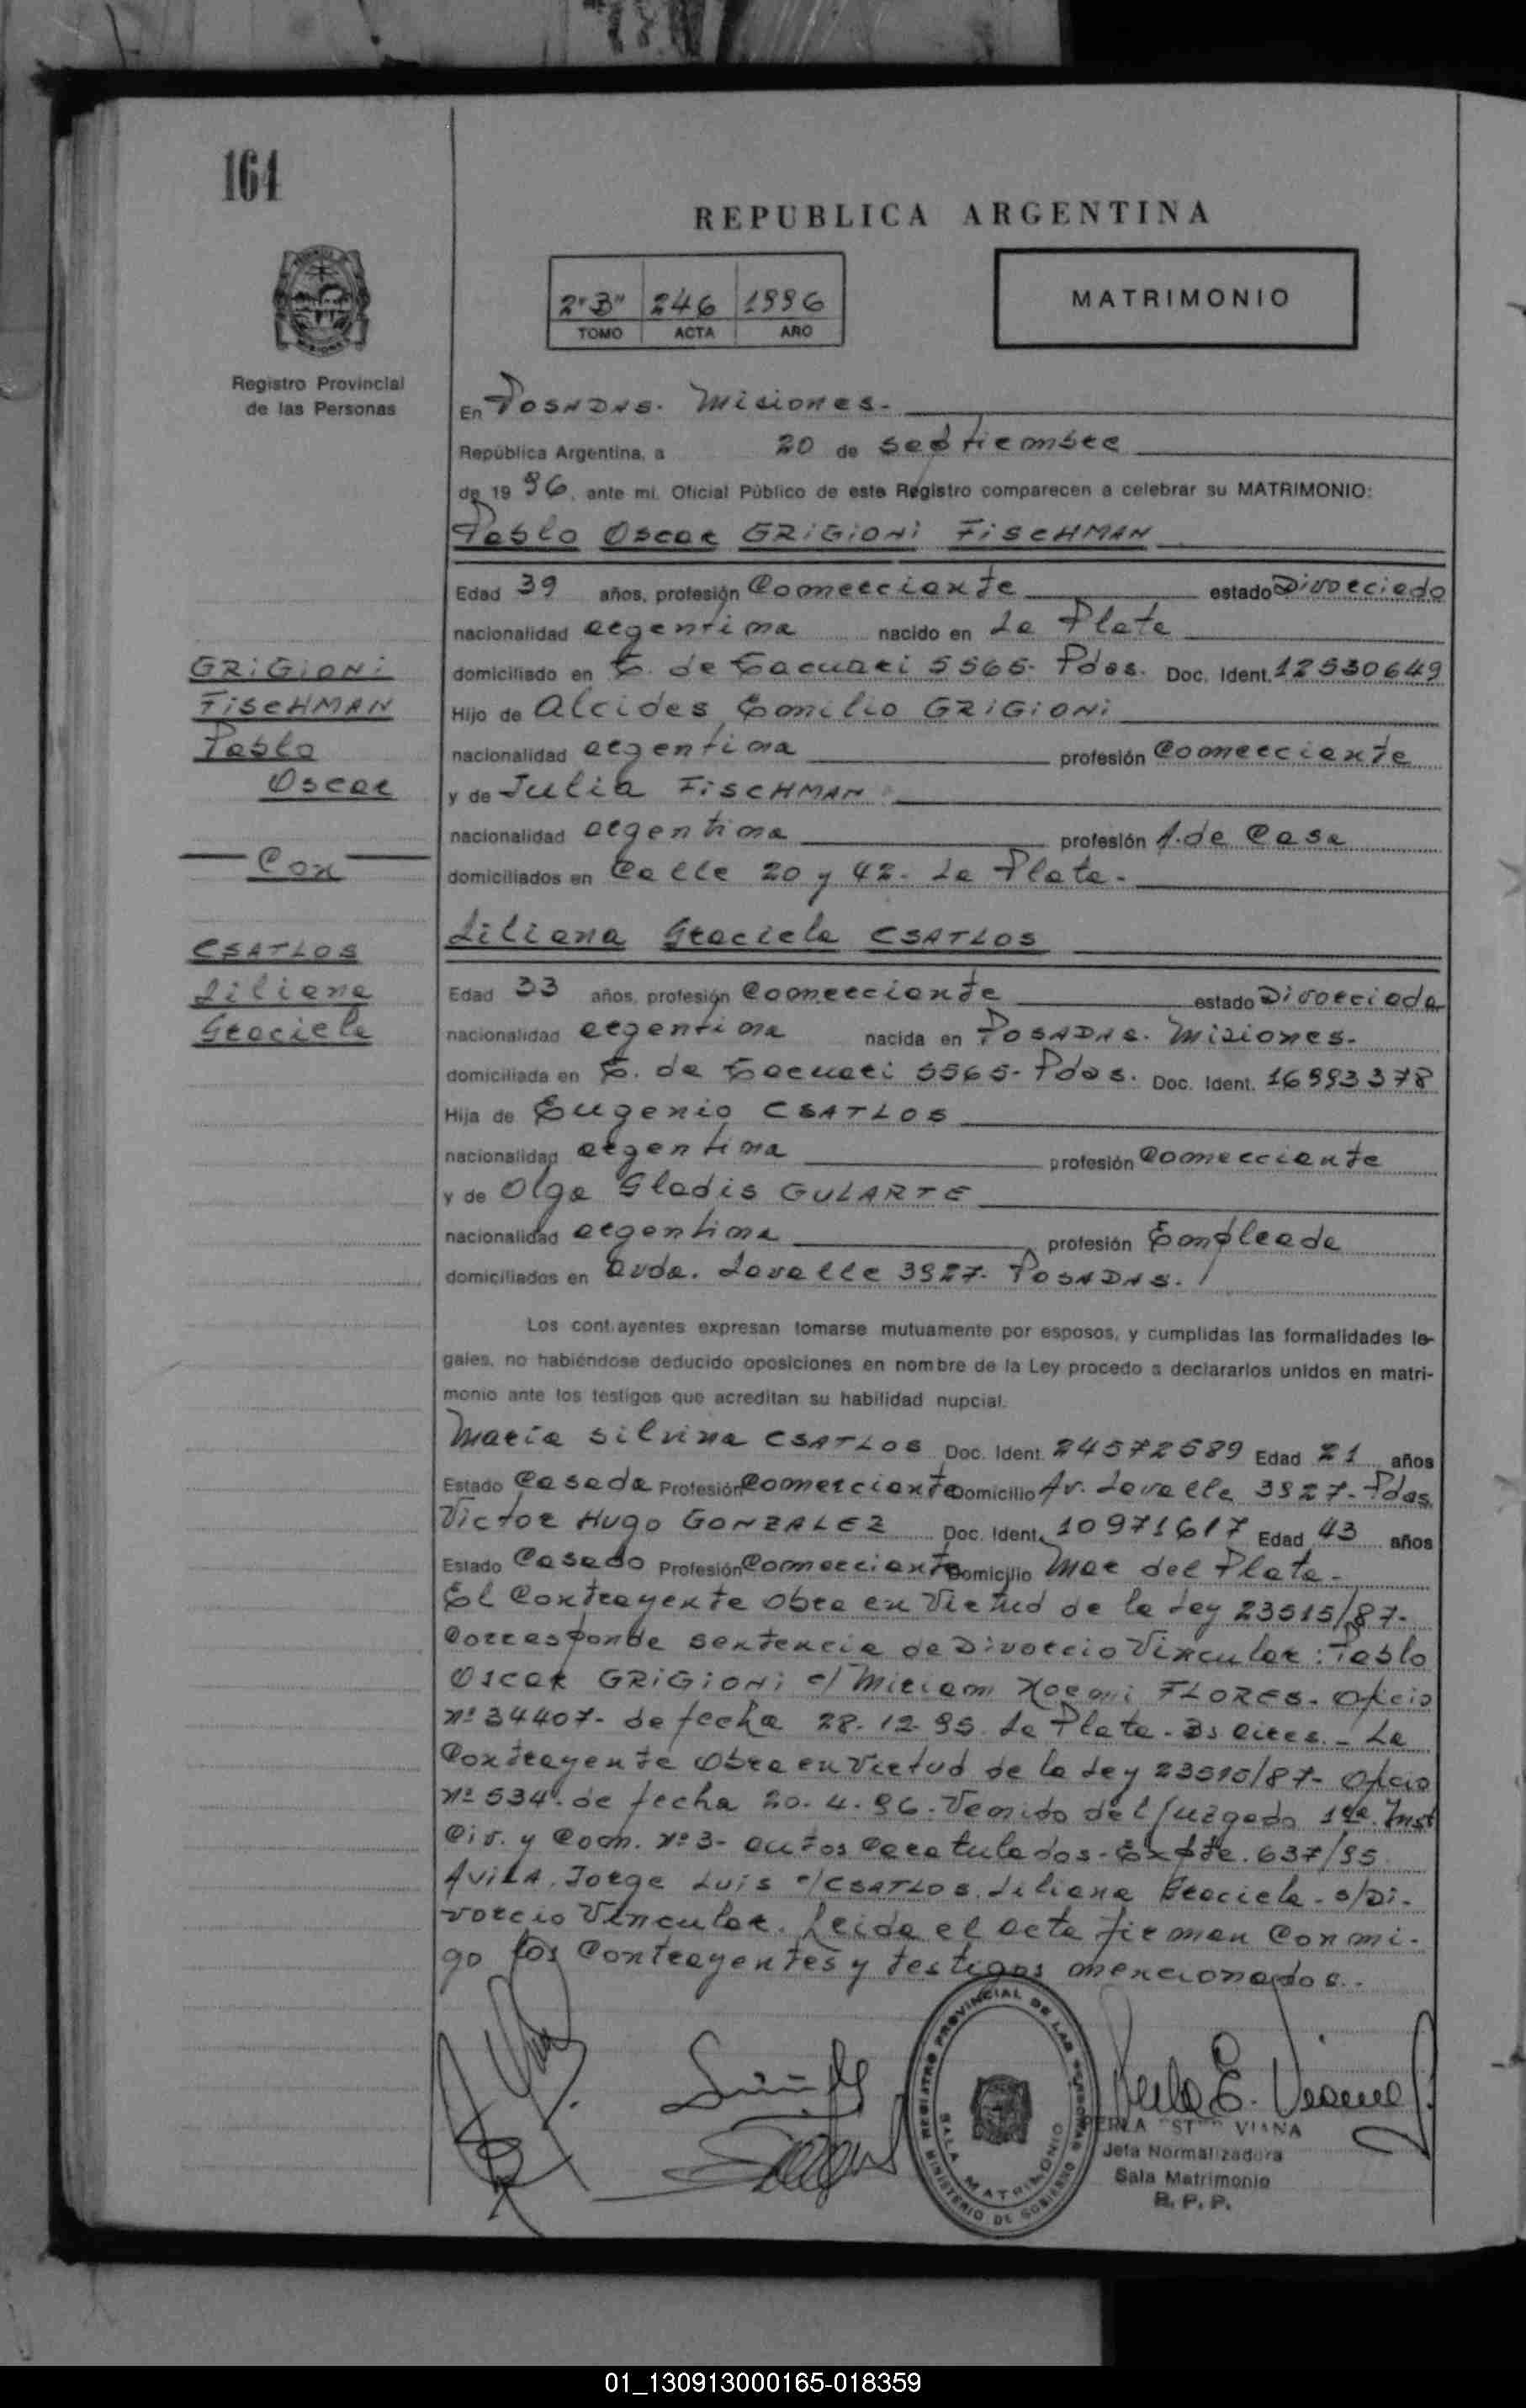 164
REPUBLICA ARGENTINA
2"B" 246 1996
TOMO ACTA AÑO
MATRIMONIO
Registro Provincial
de las Personas
En POSADAS. Misiones.-
República Argentina, a 20 de septiembre
de 1996, ante mi, Oficial Público de este Registro comparecen a celebrar su MATRIMONIO:
Pablo Oscar GRIGIONI FISCHMAN
Edad 39 años, profesión Comerciante estado Divorciado
nacionalidad argentina nacido en La Plata
domiciliado en T. de Tacuari 5565- Pdas. Doc. Ident. 12530649
Hijo de Alcides Emilio GRIGIONI
nacionalidad argentina profesión Comerciante
y de Julia FISCHMAN
nacionalidad argentina profesión A. de Casa
domiciliados en Calle 20 y 42- La Plata-
GRIGIONI
FISCHMAN
Pablo
Oscar
Con
CSATLOS
Liliana
Graciela
Liliana Graciela CSATLOS
Edad 33 años, profesión Comerciante estado Divorciada
nacionalidad argentina nacida en POSADAS. Misiones.
domiciliada en T. de Tacuari 5565- Pdas. Doc. Ident. 16993378
Hija de Eugenio CSATLOS
nacionalidad argentina profesión Comerciante
y de Olga Gladis GULARTE
nacionalidad argentina profesión Empleada
domiciliados en Avda. Lavalle 3927- POSADAS.
Los contrayentes expresan tomarse mutuamente por esposos, y cumplidas las formalidades le-
gales, no habiéndose deducido oposiciones en nombre de la Ley procedo a declararlos unidos en matri-
monio ante los testigos que acreditan su habilidad nupcial.
Maria Silvina CSATLOS Doc. Ident. 24572589 Edad 21 años
Estado Casada Profesión Comerciante Domicilio Av. Lavalle 3927- Pdas.
Victor Hugo GONZALEZ Doc. Ident. 10971617 Edad 43 años
Estado Casado Profesión Comerciante Domicilio Mar del Plata-
El Contrayente obra en Virtud de la Ley 23515/87-
Corresponde sentencia de Divorcio Vincular: Pablo
Oscar GRIGIONI c/ Miriam Noemi FLORES. Oficio
Nº 34407- de fecha 28-12-95. La Plata- Bs Aires.- La
Contrayente Obra en Virtud de la Ley 23515/87- Oficio
Nº 534. de fecha 20.4.96. Venido del Juzgado 1ra. Inst
Civ. y Com. Nº 3- autos Caratulados- Expte. 637/95
AVILA, Jorge Luis c/CSATLOS, Liliana Graciela- s/Di-
vorcio Vincular. Leida el acta firman Conmi-
go los Contrayentes y testigos mencionados.
REGISTRO PROVINCIAL DE LAS PERSONAS
MINISTERIO DE GOBIERNO
SALA MATRIMONIO
VIANA
Jefa Normalizadora
Sala Matrimonio
R. P. P.
01_130913000165-018359